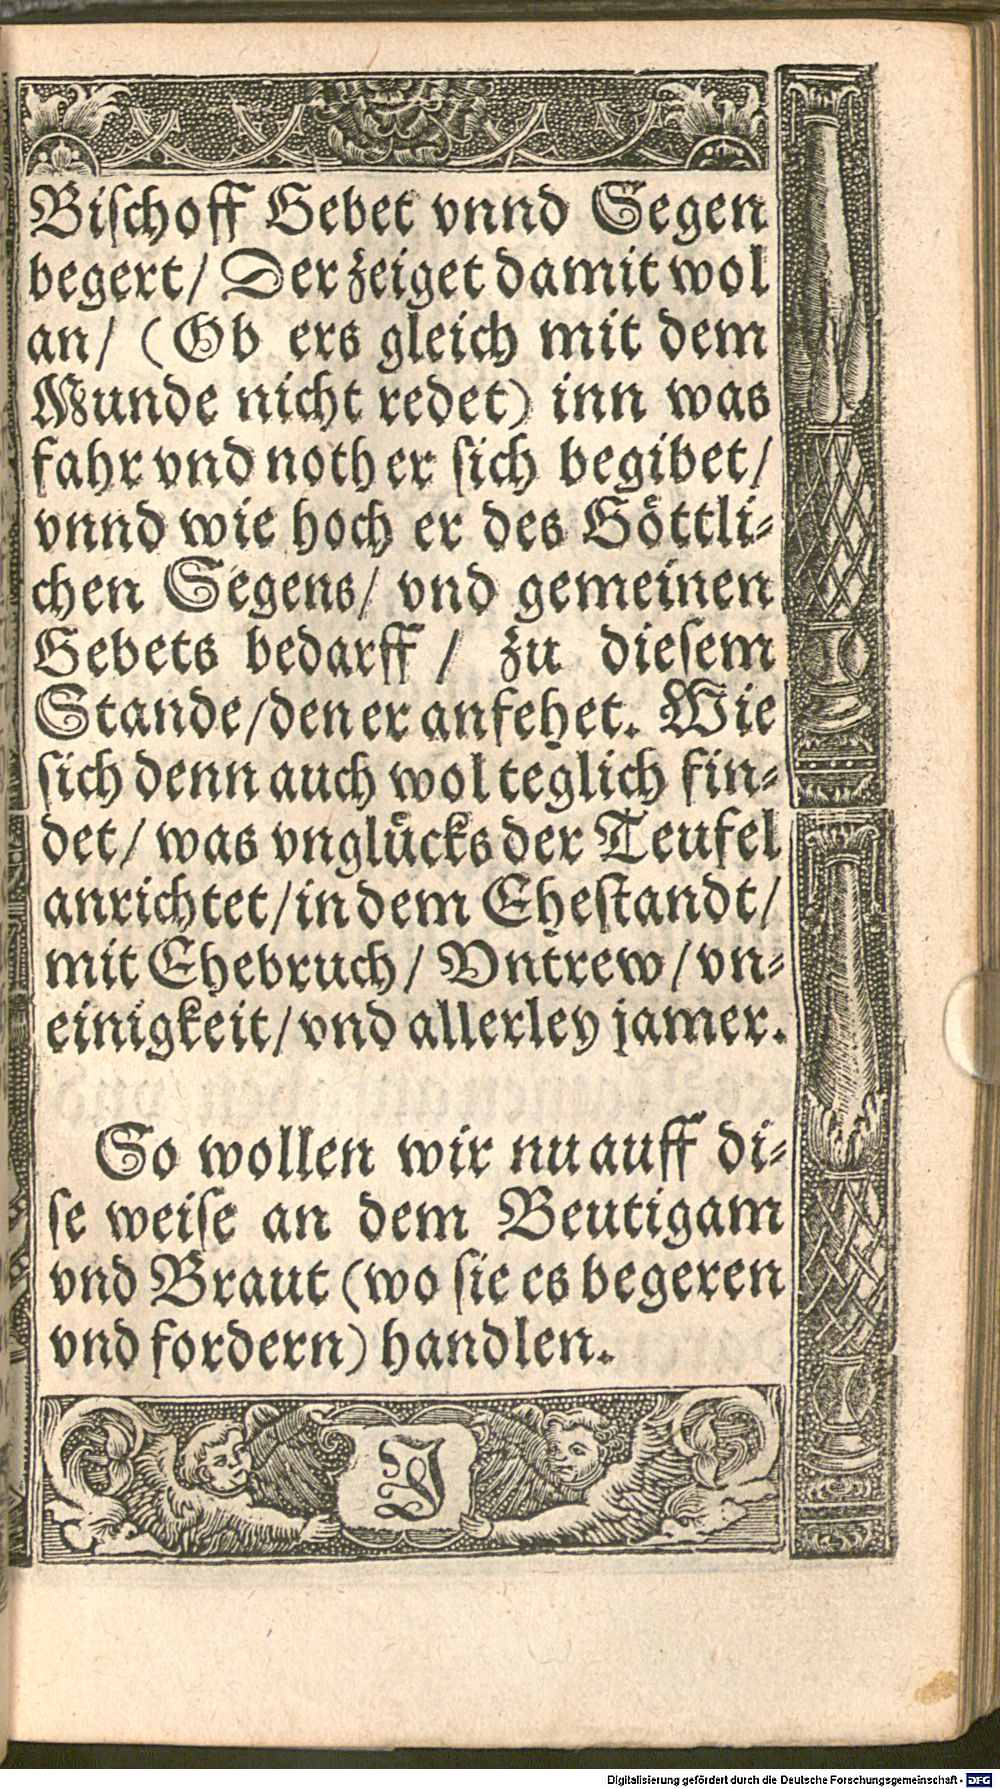 Bischoff Gebet vnnd Segen
begert/ Der zeiget damit wol
an/ (Ob ers gleich mit dem
Munde nicht redet) inn was
fahr vnd noth er sich begibet/
vnnd wie hoch er des Göttli-
chen Segens/ vnd gemeinen
Gebets bedarff / zu diesem
Stande/den er anfehet. Wie
sich denn auch wol teglich fin-
det/ was vnglücks der Teufel
anrichtet/in dem Ehestandt/
mit Ehebruch/ Vntrew/ vn-
einigkeit/ vnd allerley jamer.
So wollen wir nu auff di-
se weise an dem Beutigam
vnd Braut (wo sie es begeren
vnd fordern) handlen.
J
Digitalisierung gefördert durch die Deutsche Forschungsgemeinschaft - DFG